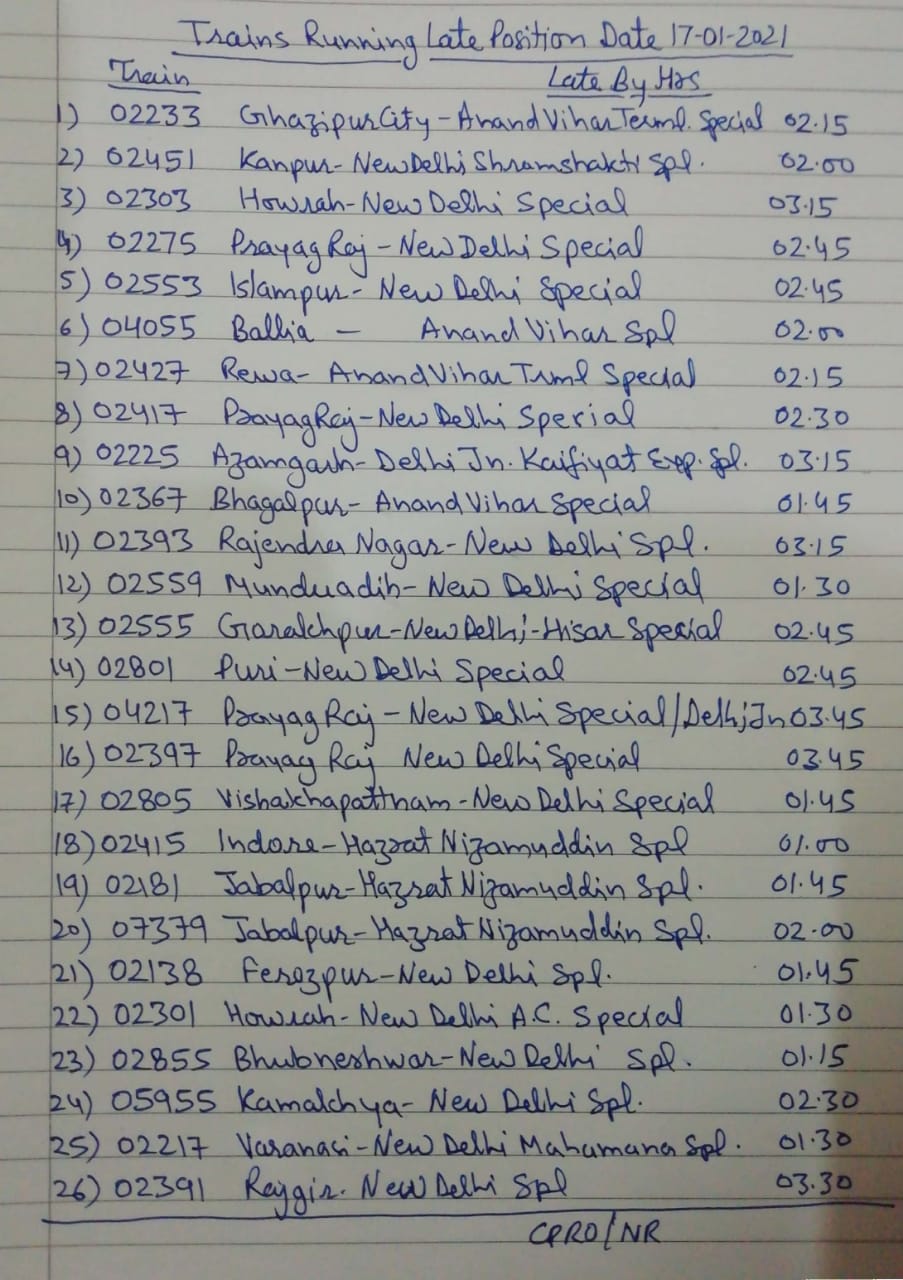 Trains Running Late Position Date 17-01-2021
Train Late By Hrs
1) 02233 Ghazipur City - Anand Vihar Terml. Special 02.15
2) 02451 Kanpur - New Delhi Shramshakti Spl. 02.00
3) 02303 Howrah - New Delhi Special 03.15
4) 02275 Prayag Raj - New Delhi Special 02.45
5) 02553 Islampur - New Delhi Special 02.45
6) 04055 Ballia - Anand Vihar Spl 02.00
7) 02427 Rewa - Anand Vihar Trml Special 02.15
8) 02417 Prayag Raj - New Delhi Special 02.30
9) 02225 Azamgarh - Delhi Jn. Kaifiyat Exp. Spl. 03.15
10) 02367 Bhagalpur - Anand Vihar Special 01.45
11) 02393 Rajendra Nagar - New Delhi Spl. 03.15
12) 02559 Munduadih - New Delhi Special 01.30
13) 02555 Gorakhpur - New Delhi - Hisar Special 02.45
14) 02801 Puri - New Delhi Special 02.45
15) 04217 Prayag Raj - New Delhi Special / Delhi Jn 03.45
16) 02397 Prayag Raj New Delhi Special 03.45
17) 02805 Vishakhapattnam - New Delhi Special 01.45
18) 02415 Indore - Hazrat Nizamuddin Spl 01.00
19) 02181 Jabalpur - Hazrat Nizamuddin Spl. 01.45
20) 07379 Jabalpur - Hazrat Nizamuddin Spl. 02.00
21) 02138 Ferozpur - New Delhi Spl. 01.45
22) 02301 Howrah - New Delhi A.C. Special 01.30
23) 02855 Bhubneshwar - New Delhi Spl. 01.15
24) 05955 Kamakhya - New Delhi Spl. 02.30
25) 02217 Varanasi - New Delhi Mahamana Spl. 01.30
26) 02391 Rajgir. New Delhi Spl 03.30
CPRO/NR